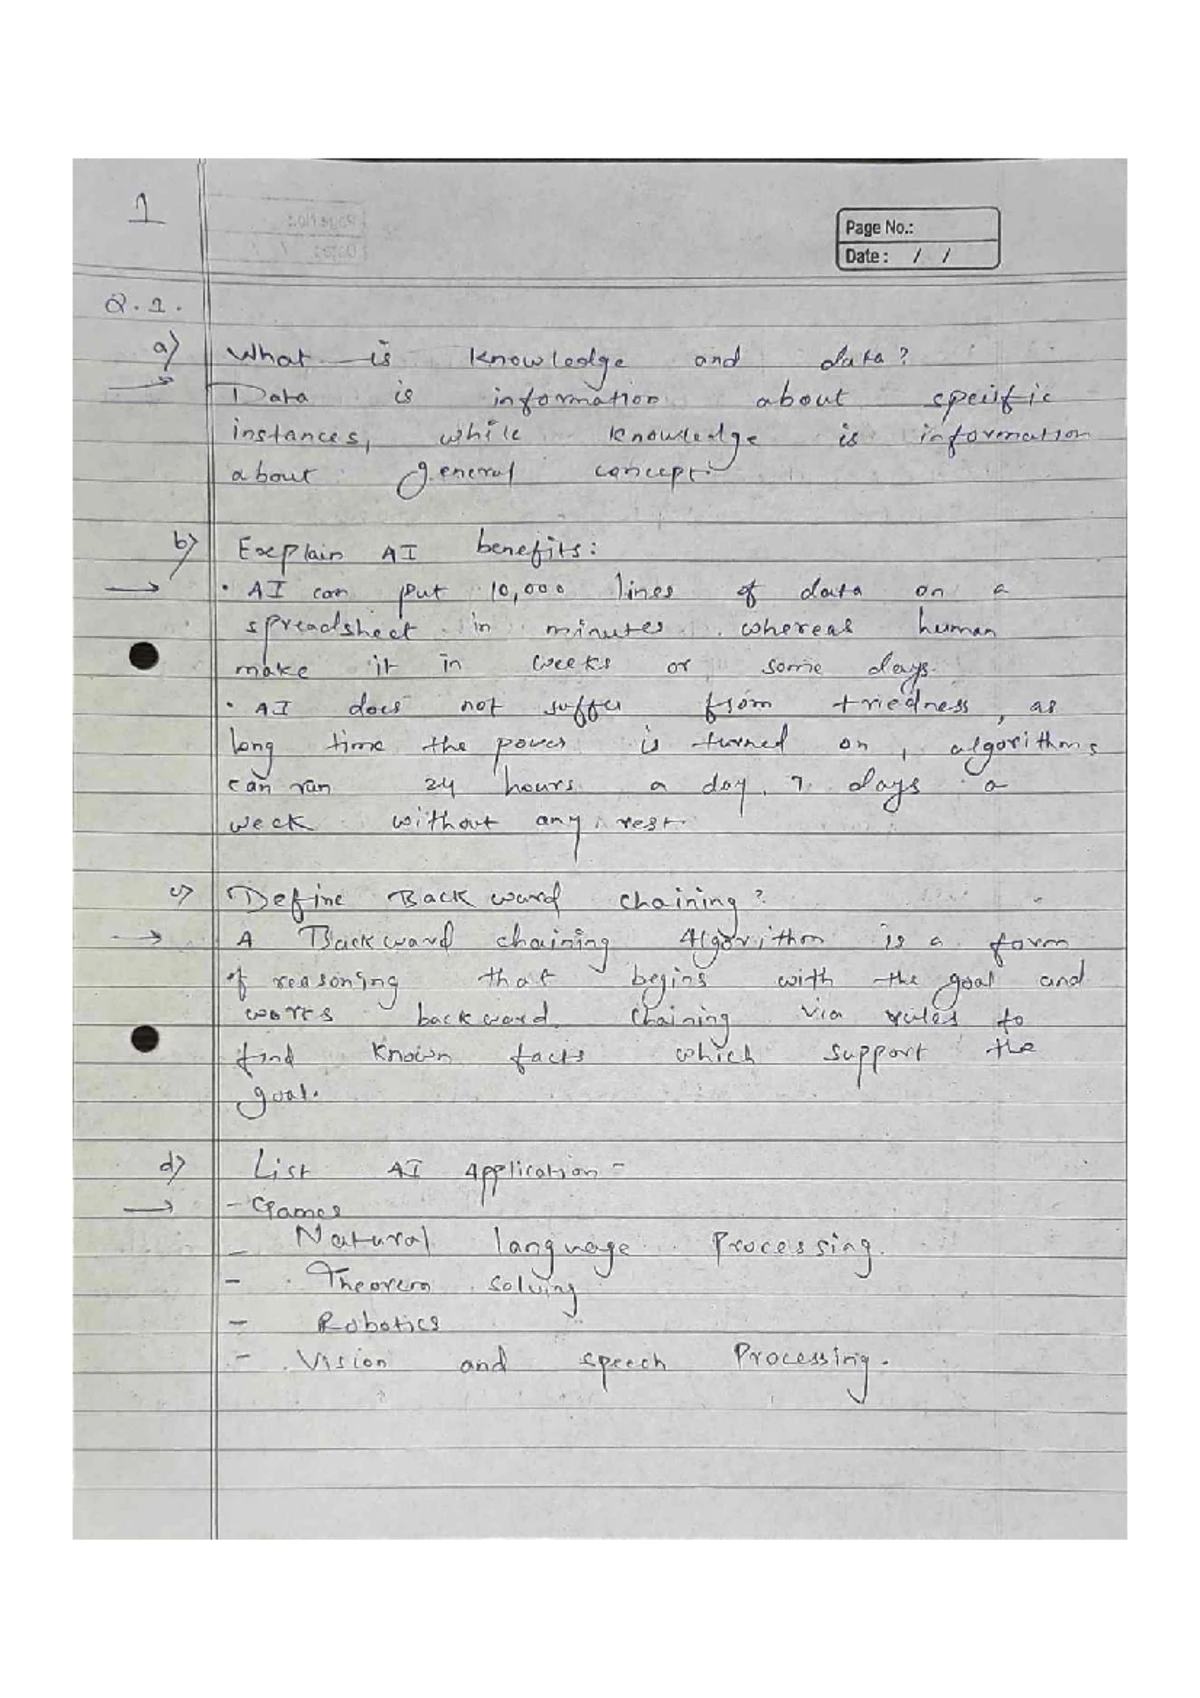 1
Page No.:
Date : / /
Q.1.
a) What is knowledge and data?
→ Data is information about specific
instances, while knowledge is information
about general concept.
b) Explain AI benefits:
→ • AI can put 10,000 lines of data on a
spreadsheet in minutes whereas human
make it in weeks or some days.
• AI does not suffer from triedness, as
long time the power is turned on, algorithms
can run 24 hours a day, 7 days a
week without any rest.
c) Define Backward chaining?
→ A Backward chaining Algorithm is a form
of reasoning that begins with the goal and
works backward. Chaining via rules to
find known facts which support the
goal.
d) List AI Application -
→ - Games
- Natural language Processing.
- Theorem solving
- Robotics
- Vision and speech Processing.